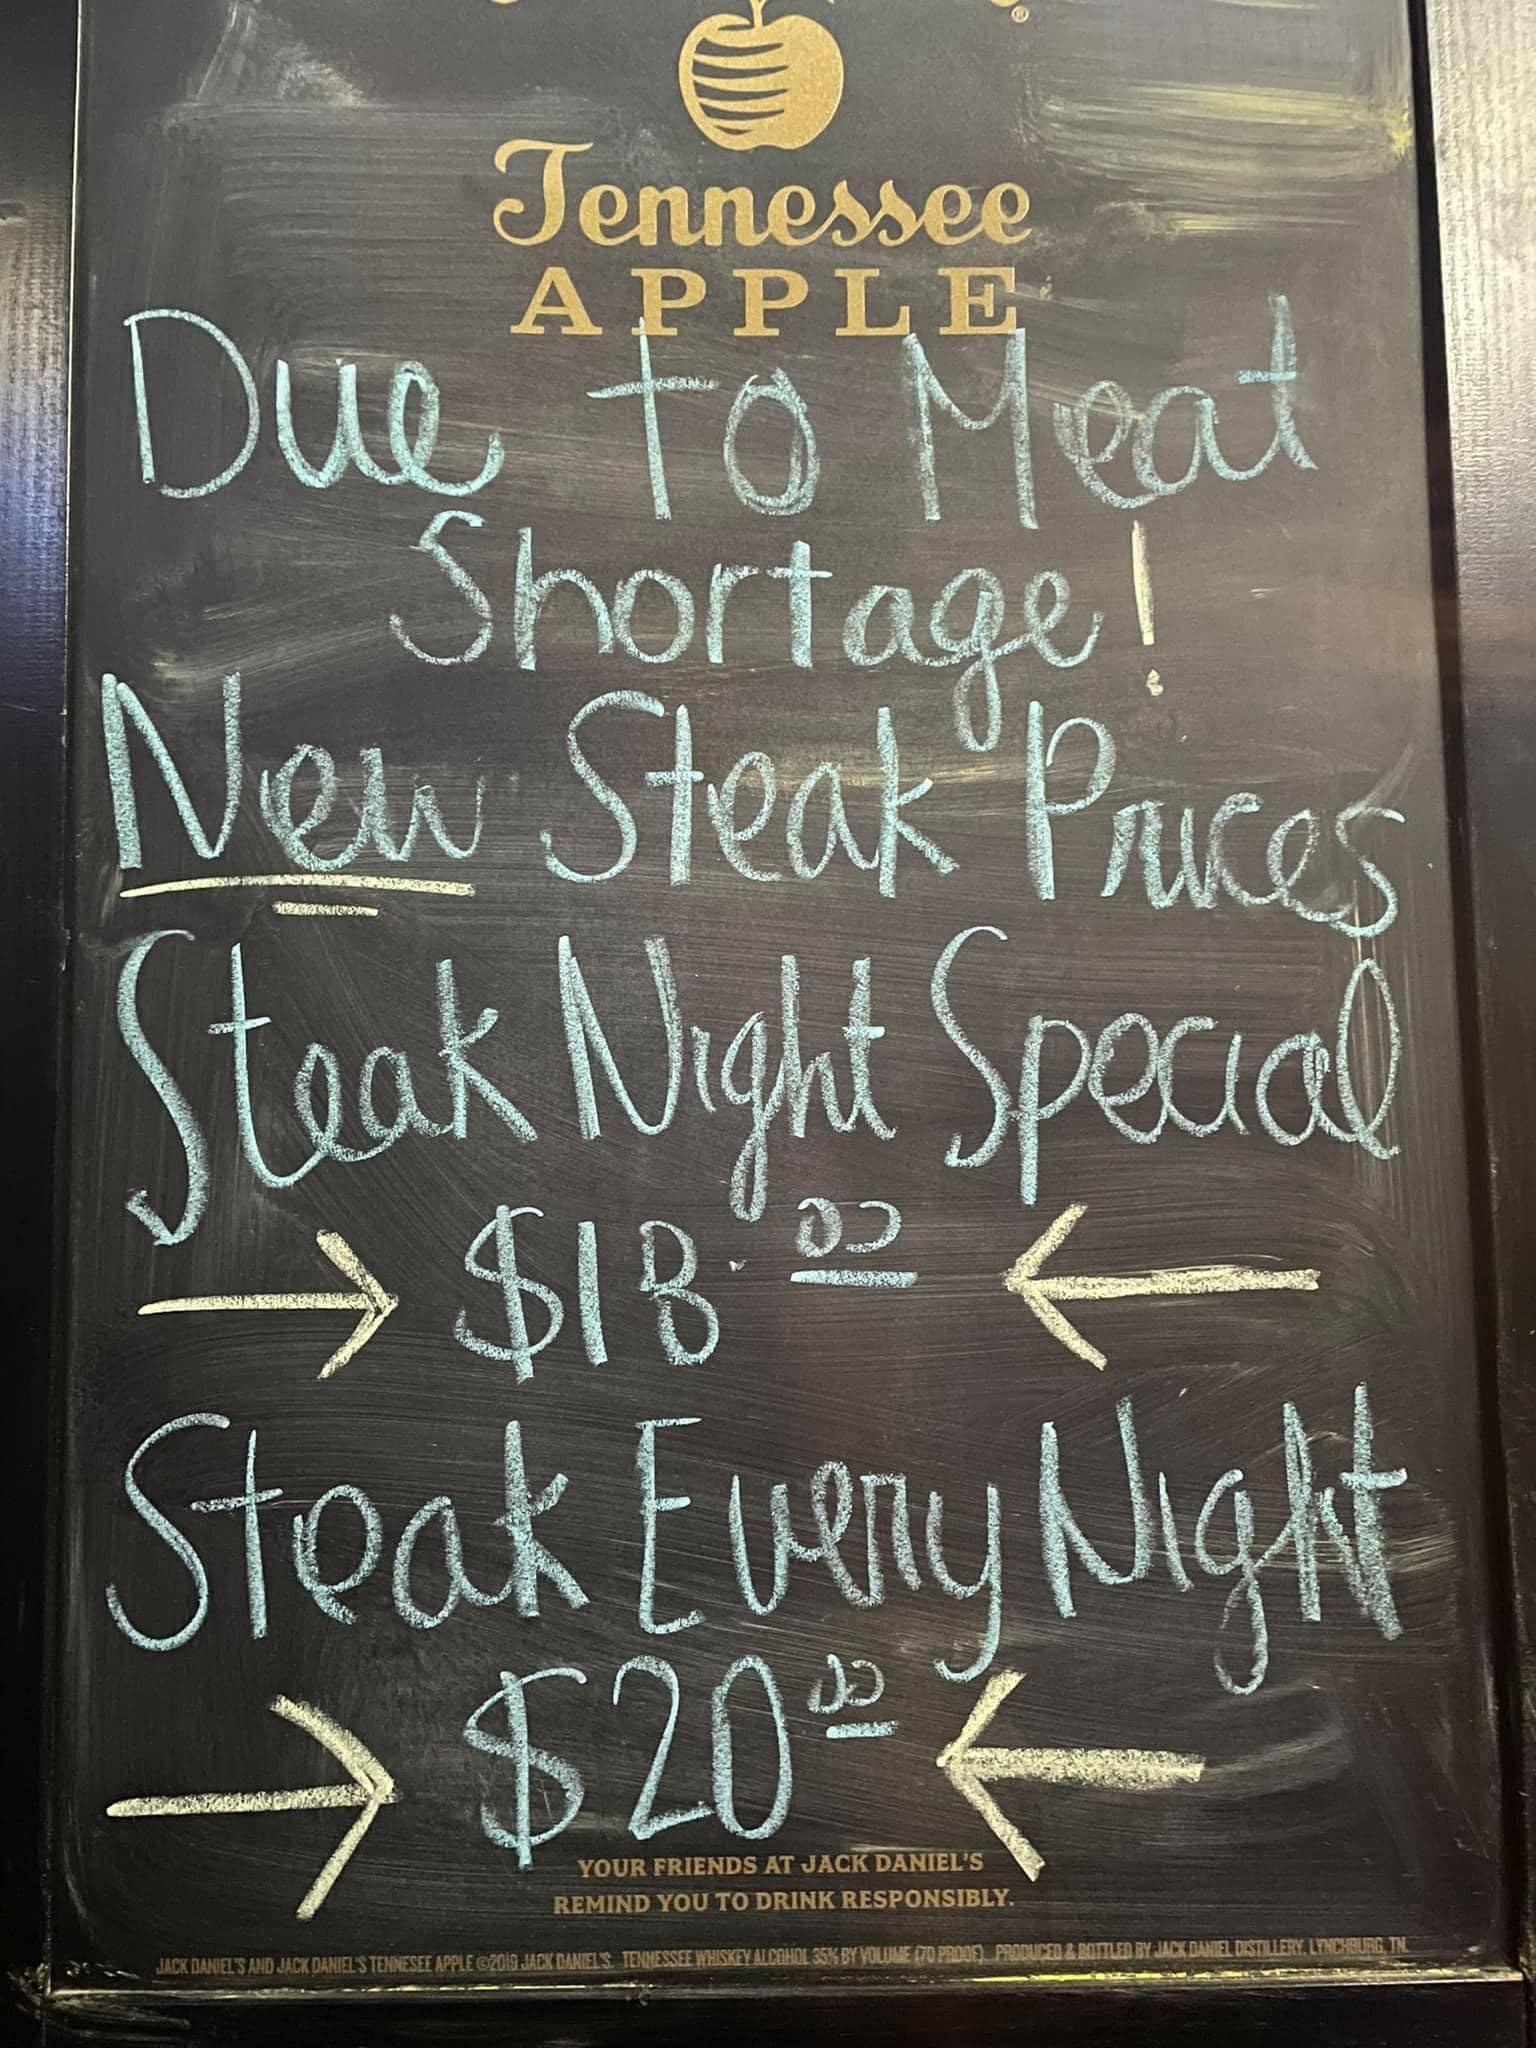 Tennessee
APPLE
Due to Meat
Shortage!
New Steak Prices
Steak Night Special
→ $18.00 ←
Steak Every Night
→ $20.00 ←
YOUR FRIENDS AT JACK DANIEL'S
REMIND YOU TO DRINK RESPONSIBLY.
JACK DANIEL'S AND JACK DANIEL'S TENNESEE APPLE ©2019 JACK DANIEL'S. TENNESSEE WHISKEY ALCOHOL 35% BY VOLUME (70 PROOF). PRODUCED & BOTTLED BY JACK DANIEL DISTILLERY, LYNCHBURG, TN.